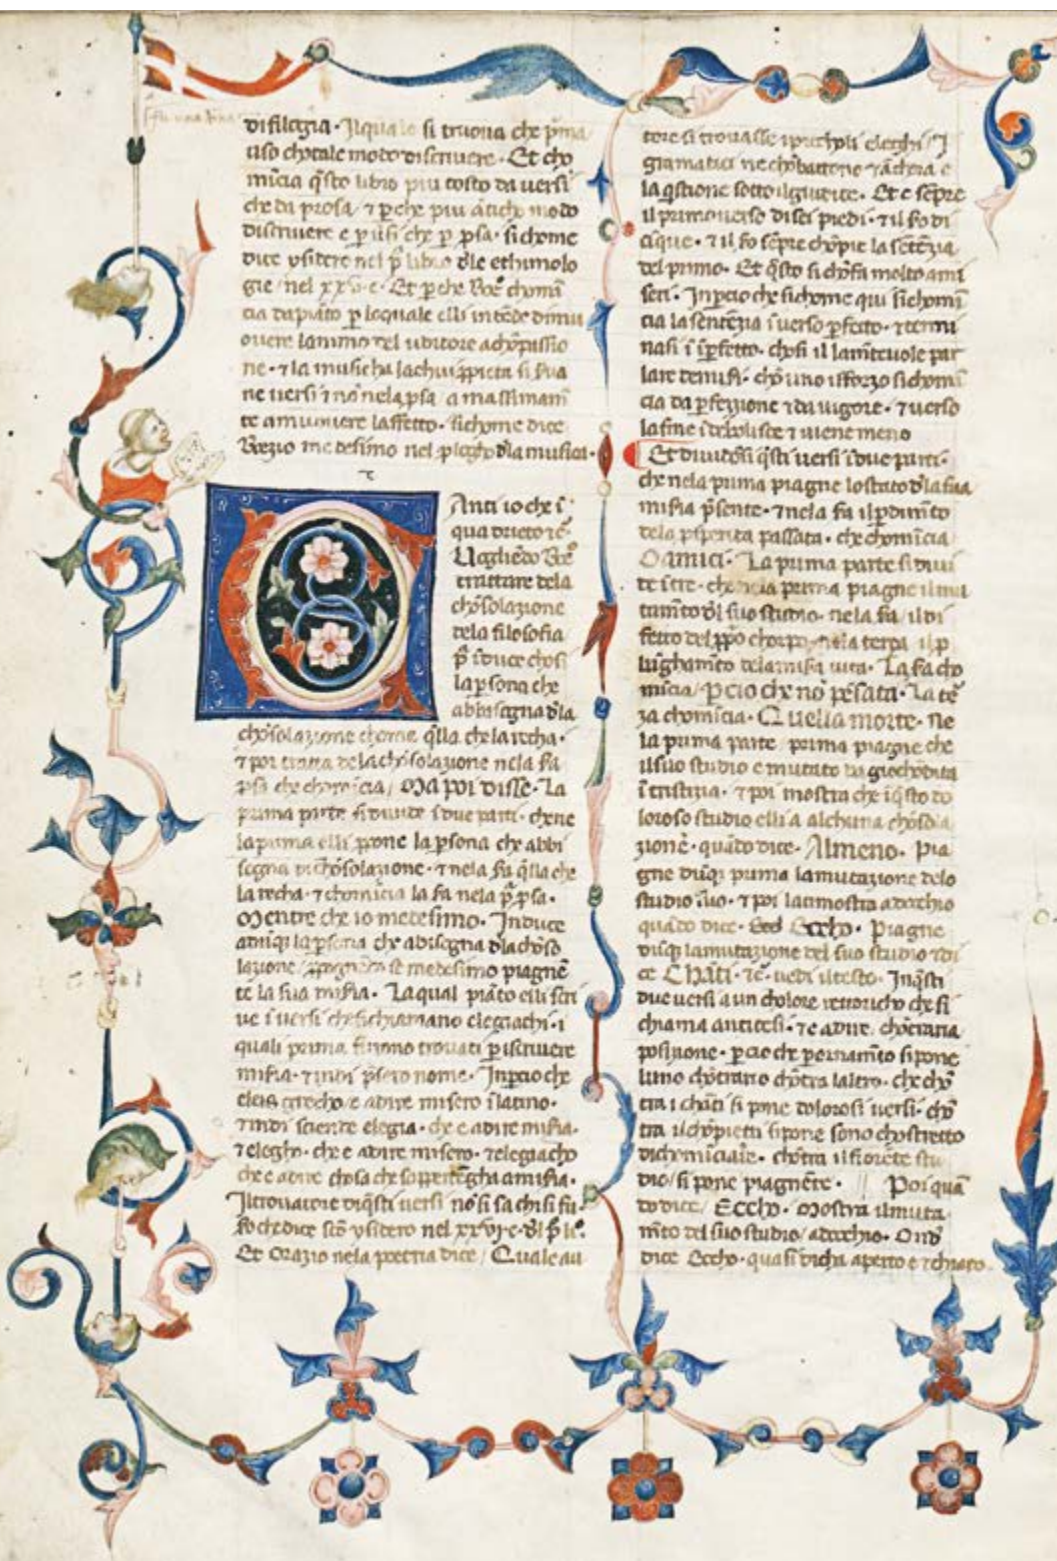 di filegia. Il quale si truova che pͥma
ciso chotale modo discrivere. Et cho
mīcia qͥsto libro piu tosto da versi
che da prosa / ⁊ ꝑche piu āticho modo
discrivere e ꝑ iisi che ꝑ ꝑsa. sichome
dice ysidero nel pͥ libro dle ethimolo
gie / nel xxv. c. Et ꝑche Boeͨ chomī
cia da piāto ꝑ loquale elli intēde dimu
overe lanimo del uditore achōpassio
ne. ⁊ la musicha lachui ꝓpieta si
ne versi ⁊ nō nela ꝓsa / a massimam̄
te amuovere laffetto. sichome dice
Boezio medesimo nel plogho dla musica.
Anti io che ī
qua drieto ⁊c̄
Uegliēdo Boeͨ
trattare dela
chōsolazione
dela filosofia
pͥ īduce chosi
la ꝑsona che
abbisogna dla
chōsolazione chome qͣlla che la recha.
⁊ poi tratta de la chōsolazione nela
ꝓsa che chomīcia / Ma poi disse. La
prima parte si divide ī due parti. che ne
la prima elli pone la ꝑsona che abbi
sogna di chōsolazione. ⁊ nela qͣlla che
la recha. ⁊ chomīcia la nela pͥ ꝓsa.
Mentre che io medesimo. Induce
adūqi la ꝑsona che abisogna dla chōso
lazione / se medesimo piagnē
te la sua misīa. La qual piāto elli scri
ve ī versi che si chiamano elegiachi. i
quali prima furono trovati ꝑ iscrivere
misīa. ⁊ indi pͥsero nome. Inꝑcio che
eleis grecho / e adire misero ī latino.
⁊ indi sciende elegia. che e adire misīa.
⁊ elegho. che e adire misero. ⁊ elegiacho
che e adire chosa che sapertēgha a misīa.
Il trovatore di qͥsti versi nō si sa chi si fu.
so che dice sc̄o ysidero nel xxvj. c. dl pͥ liͦ.
Et Orazio nela poetria dice / Quale au
tore si trovasse i piccholi eleghi / I
gramatici ne chōbattono ⁊ āchora e
la qͥstione sotto il giudice. Et e sēpre
il primo verso di sei piedi. ⁊ il di
cīque. ⁊ il sēpre chōpie la setēzia
del primo. Et qͥsto si chōfa molto a mi
seri. Inꝑcio che sichome qui si chomī
cia la sentēzia ī verso ꝑfetto. ⁊ termi
nasi ī īꝑfetto. chosi il lamētevole par
lare de miseri. chō uno isforzo si chomī
cia da ꝑfezzione ⁊ da vigore. ⁊ verso
la fine īdebolisce ⁊ viene meno
Et dividōsi qͥsti versi ī due parti.
che nela prima piagne lo stato dla sua
misīa pͥsente. ⁊ nela il ꝑdimēto
dela ꝓsperita passata. che chomīcia
O amici. La prima parte si divi
de ī tre. che nela prima piagne il mu
tamēto dl suo studio. nela il di
fetto del ꝓpo chorpo. nela terza il ꝓ
lūghamēto dela misīa vita. La cho
mīcia / Pcio che nō pēsata. La te
za chomīcia. Quella morte. Ne
la prima parte / prima piagne che
il suo studio e mutato da giochōdita
ī tristizia. ⁊ poi mostra che ī qͥsto do
loroso studio elli a alchuna chōsola
zione. quādo dice. Almeno. Pia
gne dūqi prima la mutazione delo
studio suo. ⁊ poi la dimostra adocchio
quādo dice. Eccho. Piagne
dūqi la mutazione del suo studio ⁊ di
ce Chāti. ⁊c̄. vedi il testo. In qͥsti
due versi a un cholore rettoricho che si
chiama antitesi. ⁊ e adire chōtraria
posizione. ꝑcio che ꝑ ornamēto si pone
luno chōtrario chōtra laltro. che chō
tra i chāti si pone dolorosi versi. chō
tra il chōpietti si pone sono chostretto
di chominciare. chōtra il fiorēte stu
dio / si pone piagnēte. // Poi quā
do dice / Eccho. Mostra il muta
mēto del suo studio / adocchio. Onͩ
dice Eccho. quasi dicha aperto e ⁊ chiaro.